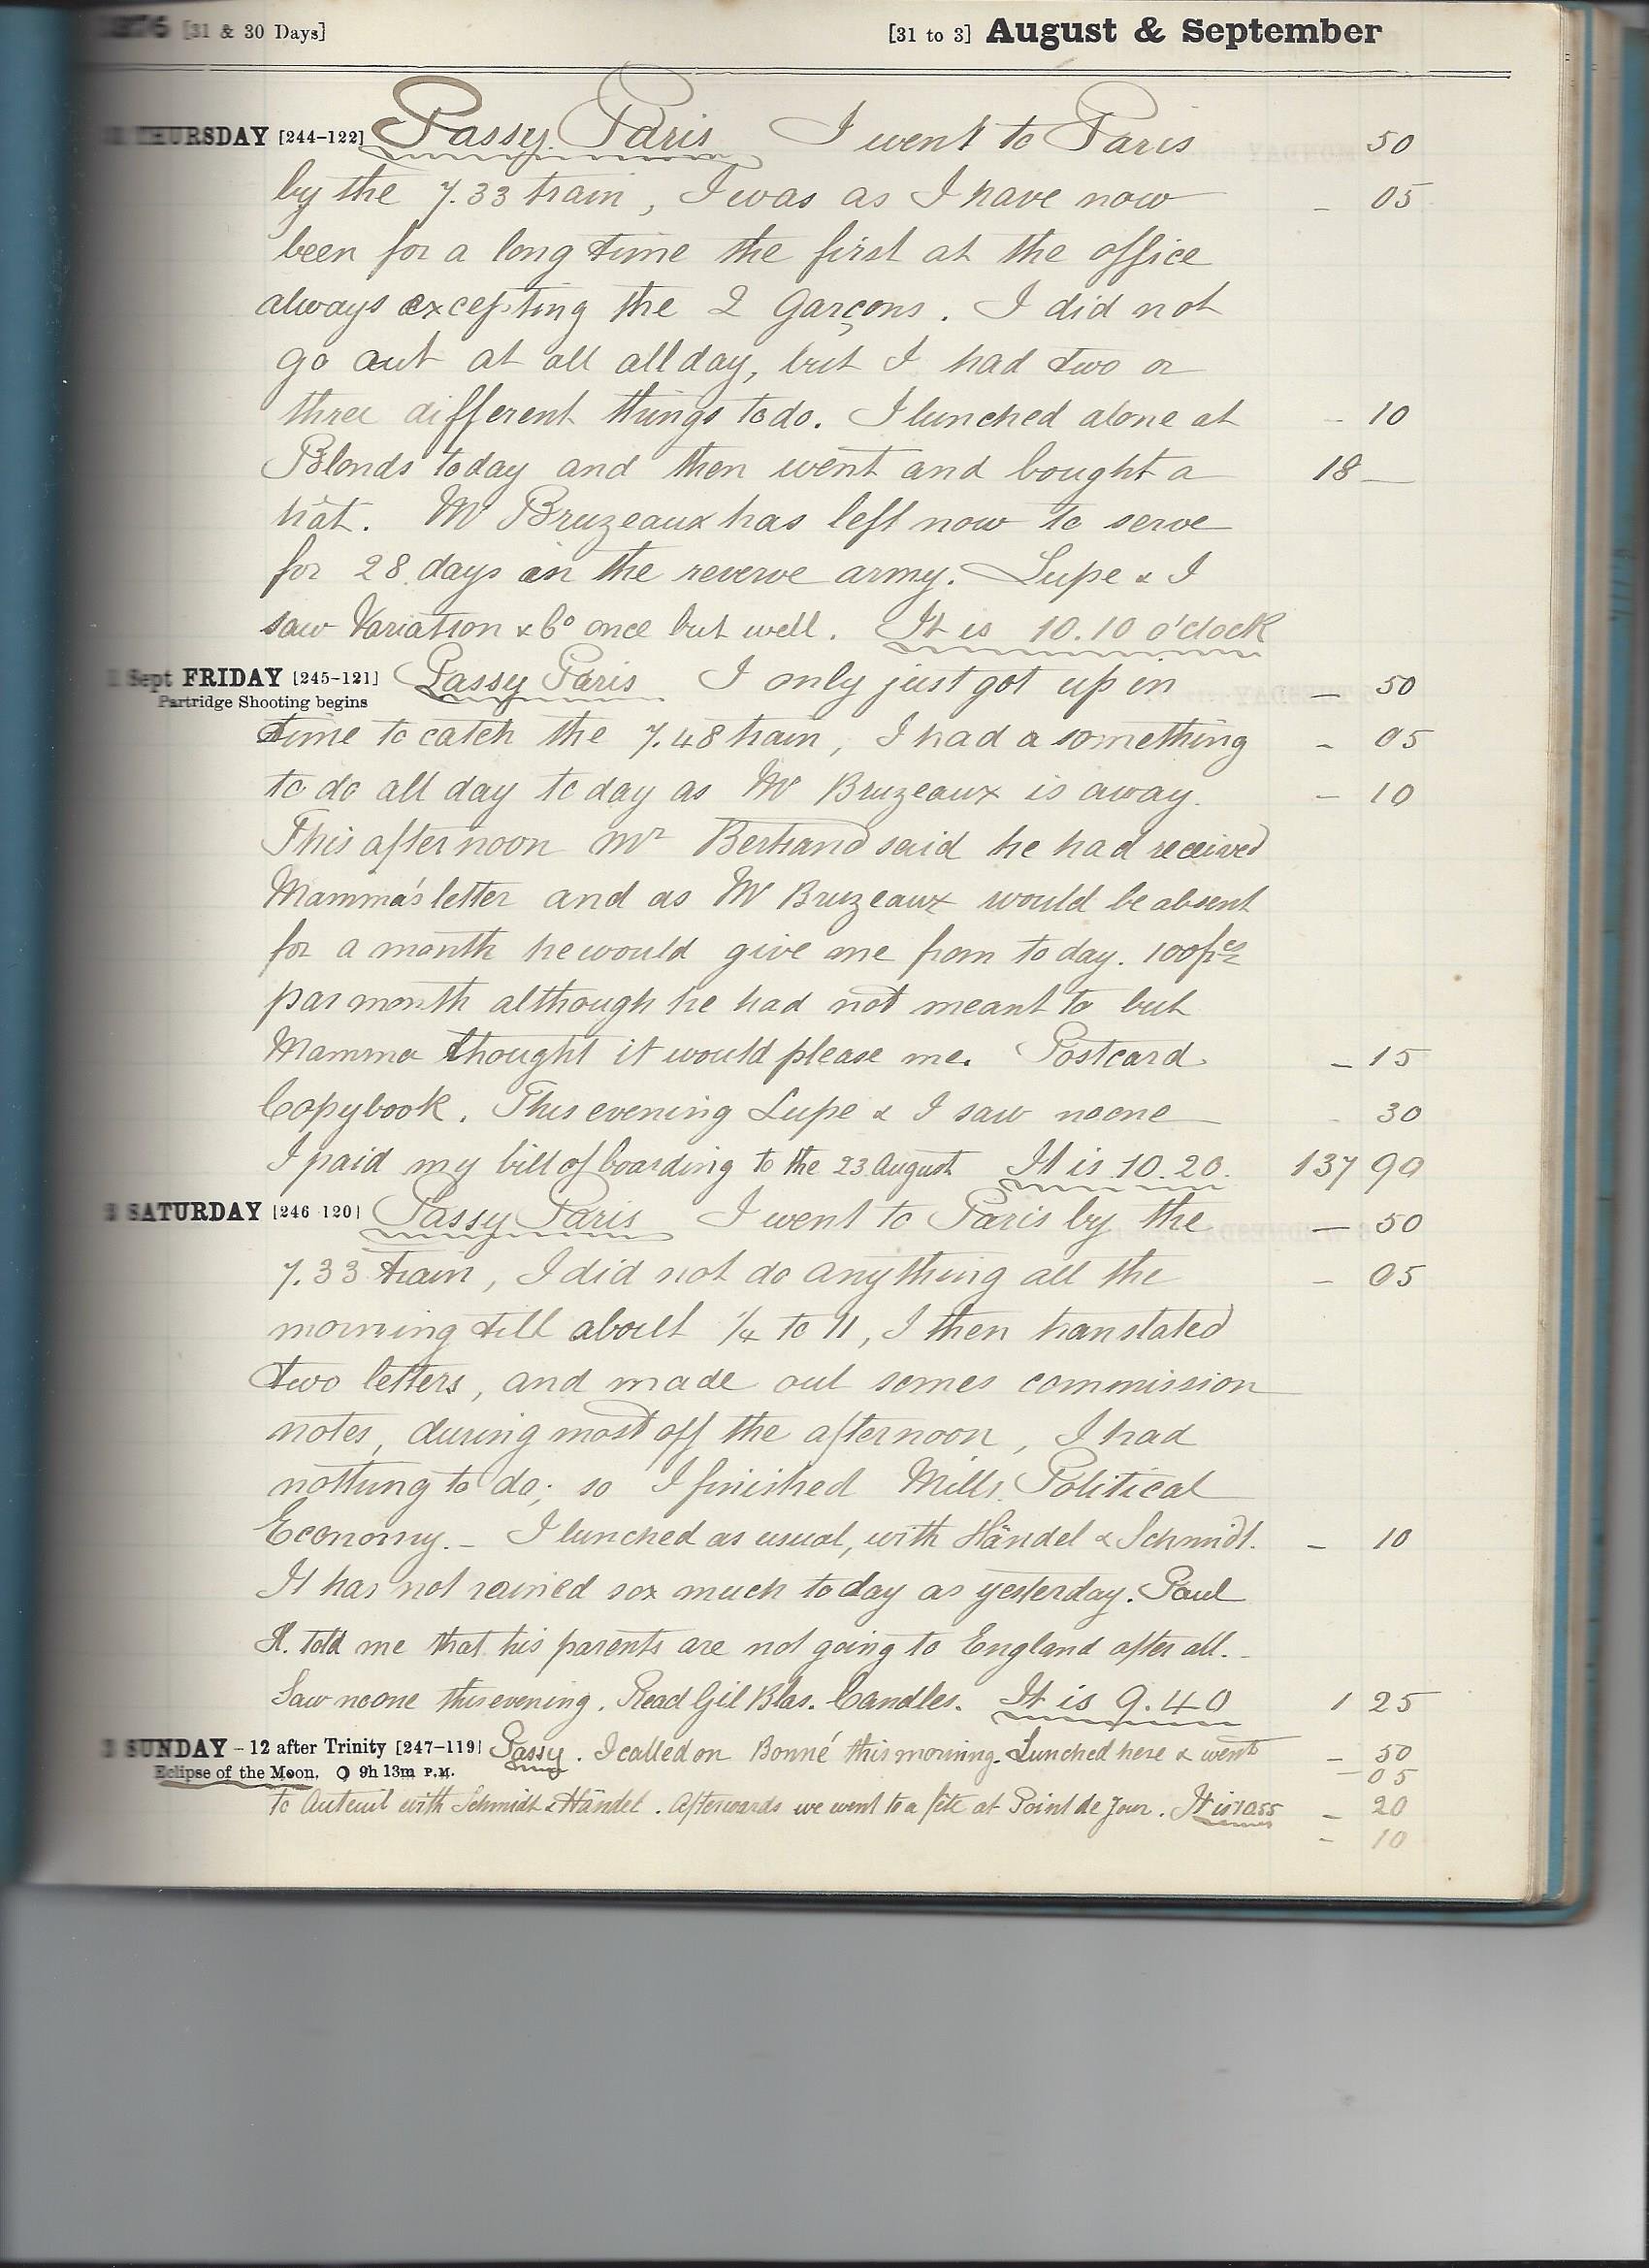 1876 [31 & 30 Days] [31 to 3] August & September
THURSDAY [244-122] Passy Paris I went to Paris 50
by the 7.33 train, I was as I have now – 05
been for a long time the first at the office
always excepting the 2 Garçons. I did not
go out at all all day, but I had two or
three different things to do. I lunched alone at – 10
Blonds today and then went and bought a 18 –
hat. Mr Bruzeaux has left now to serve
for 28 days in the reverve army. Lupe & I
saw Variation & Co once but well. It is 10.10 o'clock
Sept FRIDAY [245-121] Passy Paris I only just got up in – 50
Partridge Shooting begins
time to catch the 7.48 train, I had a something – 05
to do all day today as Mr Bruzeaux is away. – 10
This afternoon Mr Bertrand said he had received
Mamma's letter and as Mr Bruzeaux would be absent
for a month he would give me from today. 100frcs
par month although he had not meant to but
Mamma thought it would please me. Postcard. – 15
Copybook. This evening Lupe & I saw noone 30
I paid my bill of boarding to the 23 August It is 10.20. 137 90
2 SATURDAY [246-120] Passy Paris I went to Paris by the – 50
7.33 train, I did not do anything all the – 05
morning till about 1/4 to 11, I then translated
two letters, and made out somes commission
notes, during most off the afternoon, I had
nothing to do; so I finished Mills. Political
Economy. – I lunched as usual, with Händel & Schmidt. – 10
It has not rained sox much today as yesterday. Paul
H. told me that his parents are not going to England after all. –
Saw noone this evening. Read Gil Blas. Candles. It is 9.40 1 25
3 SUNDAY – 12 after Trinity [247-119] Passy. I called on Bonné this morning. Lunched here & went – 50
Eclipse of the Moon, 9h 13m P.M. – 05
to Auteuil with Schmidt & Händel. Afterwards we went to a fête at Point de Jour. It is 10.55 – 20
– 10